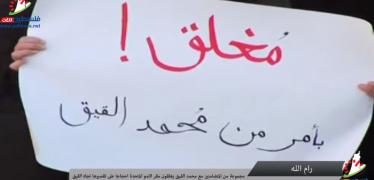 فلسطين الآن
مُغلق !
بأمر من مُحمد القيق
رام الله
مجموعة من المتضامنين مع محمد القيق يغلقون مقر الامم المتحدة احتجاجا على تقصيرها تجاه القيق